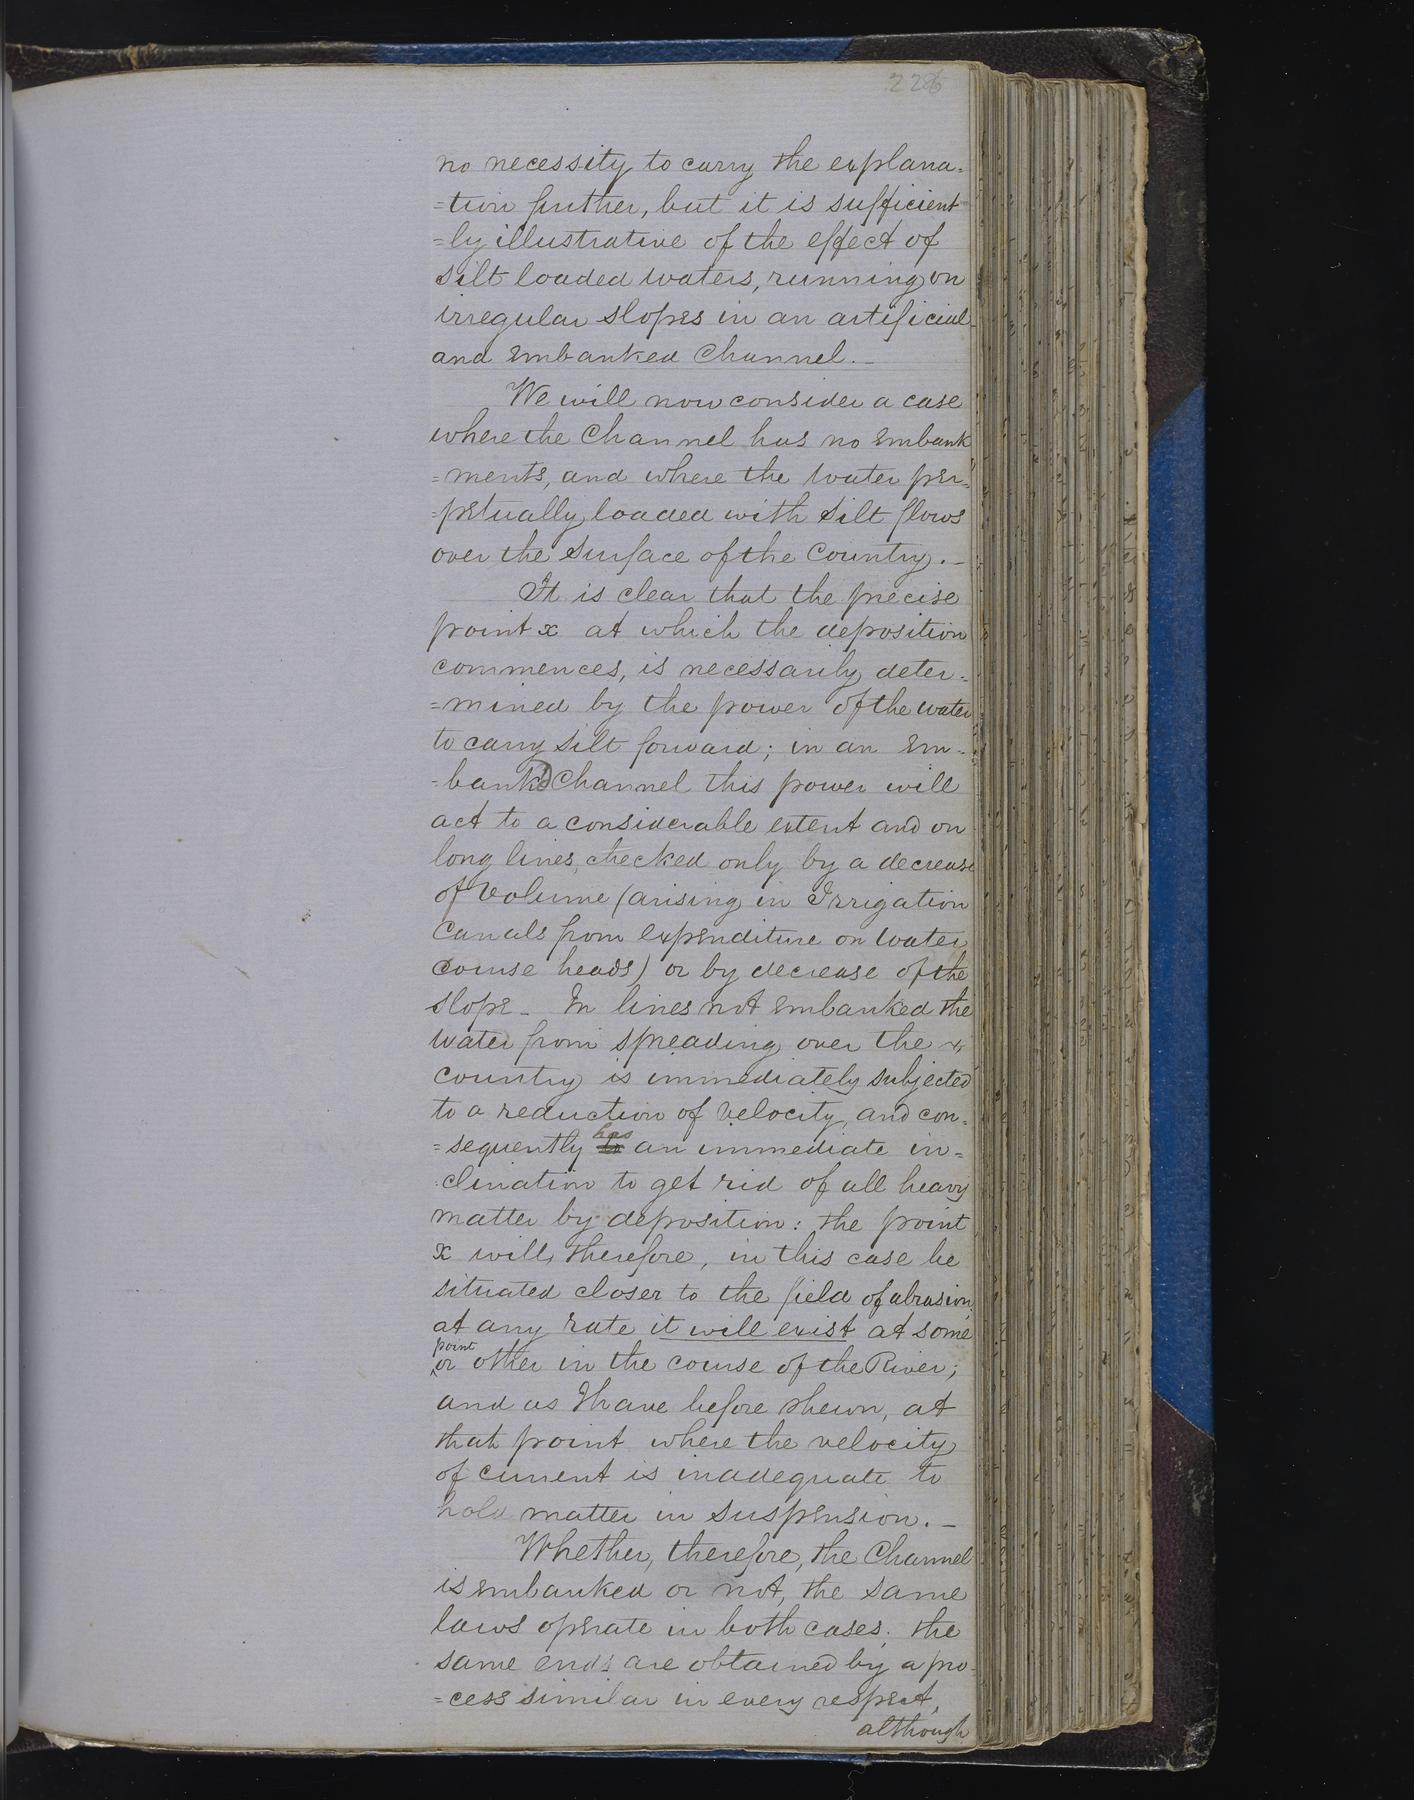 226
no necessity to carry the explana-
=tion further, but it is sufficient
=ly illustrative of the effect of
silt loaded waters, running on
irregular slopes in an artificial
and embanked Channel. _
We will now consider a case
where the Channel has no embank
=ments, and where the water per=
=petually loaded with silt flows
over the surface of the Country. _
It is clear that the precise
point x at which the deposition
commences, is necessarily deter-
=mined by the power of the water
to carry silt forward; in an em-
-bank'd Channel this power will
act to a considerable extent and on
long lines, checked only by a decrease
of volume (arising in Irrigation
Canals from expenditure on water
course heads) or by decrease of the
slope _ In lines not embanked the
water from spreading over the
country is immediately subjected
to a reduction of velocity, and con-
=sequently has an immediate in=
clination to get rid of all heavy
matter by deposition: the point
x will, therefore, in this case be
situated closer to the field of abrasion,
at any rate it will exist at some
point
or other in the course of the River;
and as I have before shewn, at
that point where the velocity
of current is inadequate to
hold matter in suspension. _
Whether, therefore, the Channel
is embanked or not, the same
laws operate in both cases; the
same ends are obtained by a pro-
=cess similar in every respect,
although